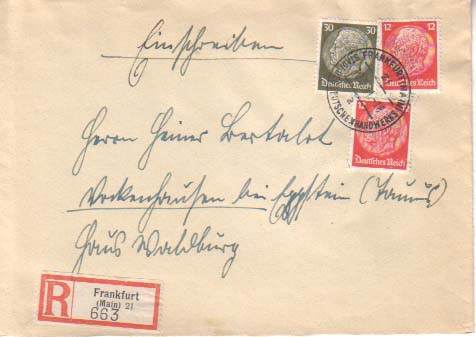 Einschreiben
30
Deutsches Reich
12
Deutsches Reich
12
Deutsches Reich
FRANKFURT
HANDWERKS
Herrn Heiner Bertalot
Vockenhausen bei Eppstein (Taunus)
Haus Waldburg
R
Frankfurt
(Main) 21
663